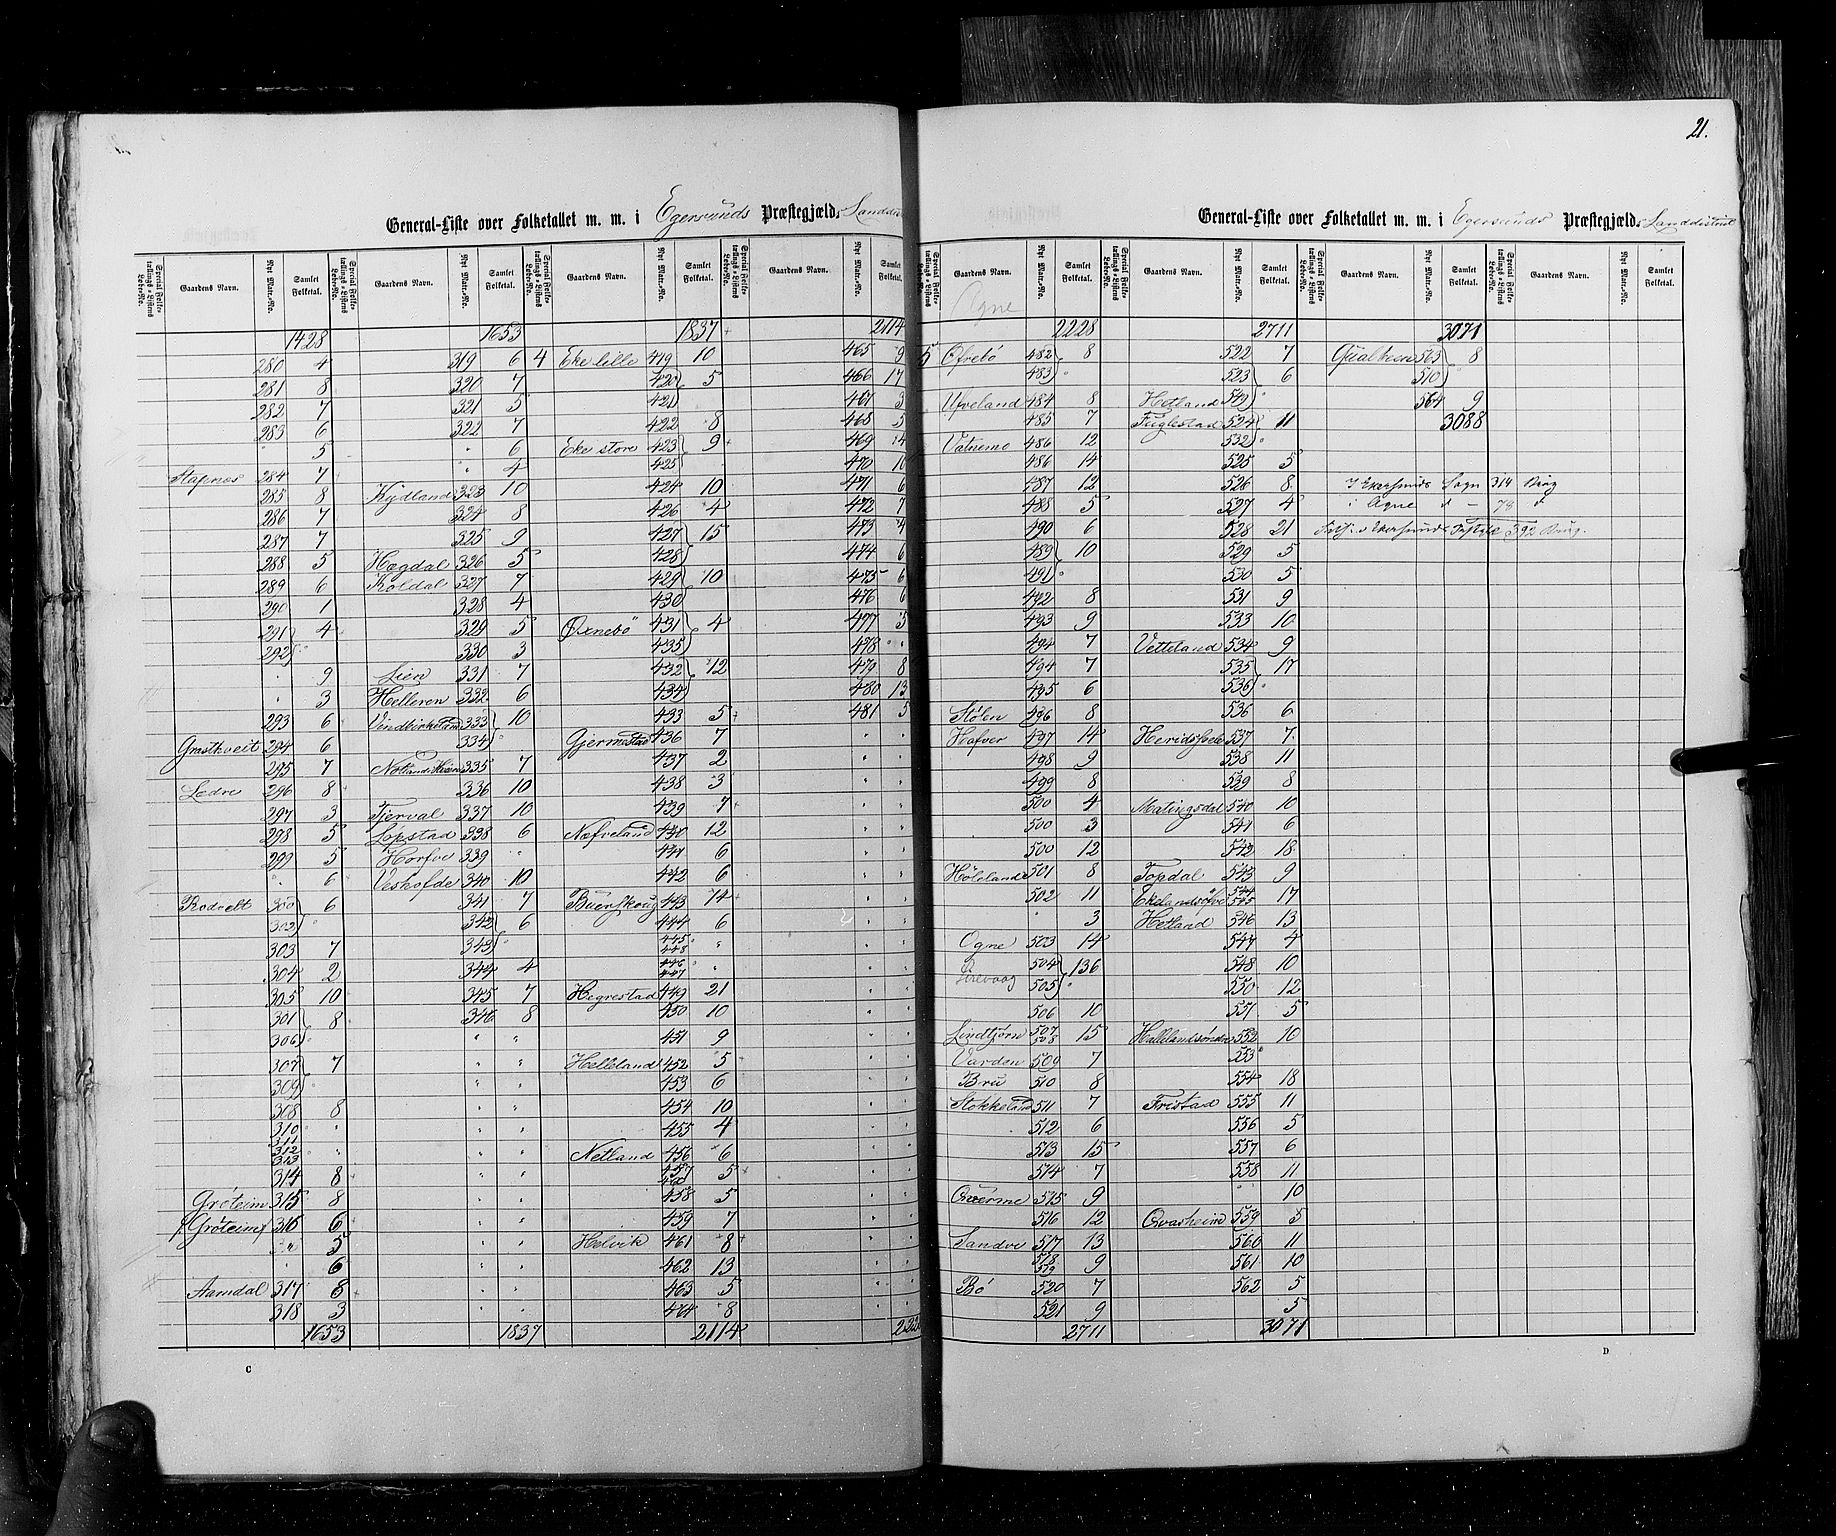 21.
General-Liste over Folketallet m. m. i Egersunds Præstegjæld, Landdi
Special Folketællings-Listens Løbe-No. Gaardens Navn. Nyt Matr.-No. Samlet Folketal. Special Folketællings-Listens Løbe-No. Nyt Matr.-No. Samlet Folketal. Special Folketællings-Listens Løbe-No. Gaardens Navn. Nyt Matr.-No. Samlet Folketal. Special Folketællings-Listens Løbe-No. Gaardens Navn. Nyt Matr.-No. Samlet Folketal.
1428 1653 1837 2114
280 4 319 6 4 Eke lille 419 10 465 9
281 8 320 7 420 5 466 17
282 7 321 5 421 467 3
283 6 322 7 422 8 468 5
" 5 " 6 Eke store 423 9 469 4
Stapnes 284 7 " 4 425 470 10
285 8 Kydland 323 10 424 10 471 6
286 7 324 8 426 4 472 7
287 7 325 9 427 15 473 4
288 5 Hægdal 326 5 428 474 6
289 6 Koldal 327 7 429 10 475 6
290 1 328 4 430 476 6
291 4 329 5 Øxnebö 431 4 477 5
292 330 3 435 478 "
" 9 Lien 331 7 432 12 479 8
" 3 Helleren 332 6 434 480 13
293 6 Vindbirkeland 333 10 433 5 481 5
Grasthveit 294 6 334 Gjermestad 436 7
295 7 335 7 437 2
Ledre 296 8 336 10 438 3
297 3 Tjerval 337 10 439 7
298 5 Lopstad 338 6 Næfveland 440 12
299 5 Horfve 339 " 441 6
" 6 Veshofde 340 10 442 6
Rodvelt 300 6 341 7 Buerskoug 443 14
302 342 6 444 6
303 7 343 445 448 "
304 2 344 4 446 447 "
305 10 345 7 Hegrestad 449 21
301 8 346 8 450 10
306 451 9
307 7 Helleland 452 5
309 453 6
308 8 454 10
310 311 " 455 4
312 313 " Netland 456 6
314 8 457 460 5
Gröteim 315 8 458 5
(Gröteim) 316 6 459 7
5 Helvik 461 8
" 6 462 13
Aamdal 317 8 463 5
318 3 464 8
1653 1837 2114 222
C
General-Liste over Folketallet m. m. i Egersunds Præstegjæld, Landdistrict
Special Folketællings-Listens Løbe-No. Gaardens Navn. Nyt Matr.-No. Samlet Folketal. Special Folketællings-Listens Løbe-No. Gaardens Navn. Nyt Matr.-No. Samlet Folketal. Special Folketællings-Listens Løbe-No. Gaardens Navn. Nyt Matr.-No. Samlet Folketal. Special Folketællings-Listens Løbe-No. Gaardens Navn. Nyt Matr.-No. Samlet Folketal.
Ogne
2228 2711 3071
5 Öfrebö 482 8 522 7 Gualteen 563 8
483 523 6 510
Ufveland 484 8 Hetland 549 564 9
485 7 Fuglestad 524 11 3088
Vatnemo 486 12 532
486 14 525 5
487 12 526 8 I Ekersunds Sogn 314 Brug
488 5 527 4 i Ogne " – 78 "
490 6 528 21 Ekersunds 392 Brug.
489 10 529 5
491 530 5
492 8 531 9
493 9 533 10
494 7 Vetteland 534 9
494 7 535 17
495 6 536
Stølen 496 8 536 6
Hafver 497 14 537 7
498 9 538 11
499 8 539 8
500 4 Matingsdal 540 10
500 3 541 6
500 12 542 18
Høleland 501 8 Topdal 543 9
502 11 544 545 17
" 3 Hetland 546 13
Ogne 503 14 547 4
Sirevaag 504 136 548 10
505 550 12
506 10 551 5
Lindtjörn 507 508 15 552 10
Varden 509 7 553
Bru 510 8 554 18
Stokkeland 511 7 Tristad 555 11
512 6 556 5
513 15 557 6
514 7 558 11
Qvérme 515 9 " 10
516 12 Qvasheim 559 5
Sandve 517 13 560 11
518 519 9 561 10
Bö 520 7 562 5
521 9 5
2711 3071
D